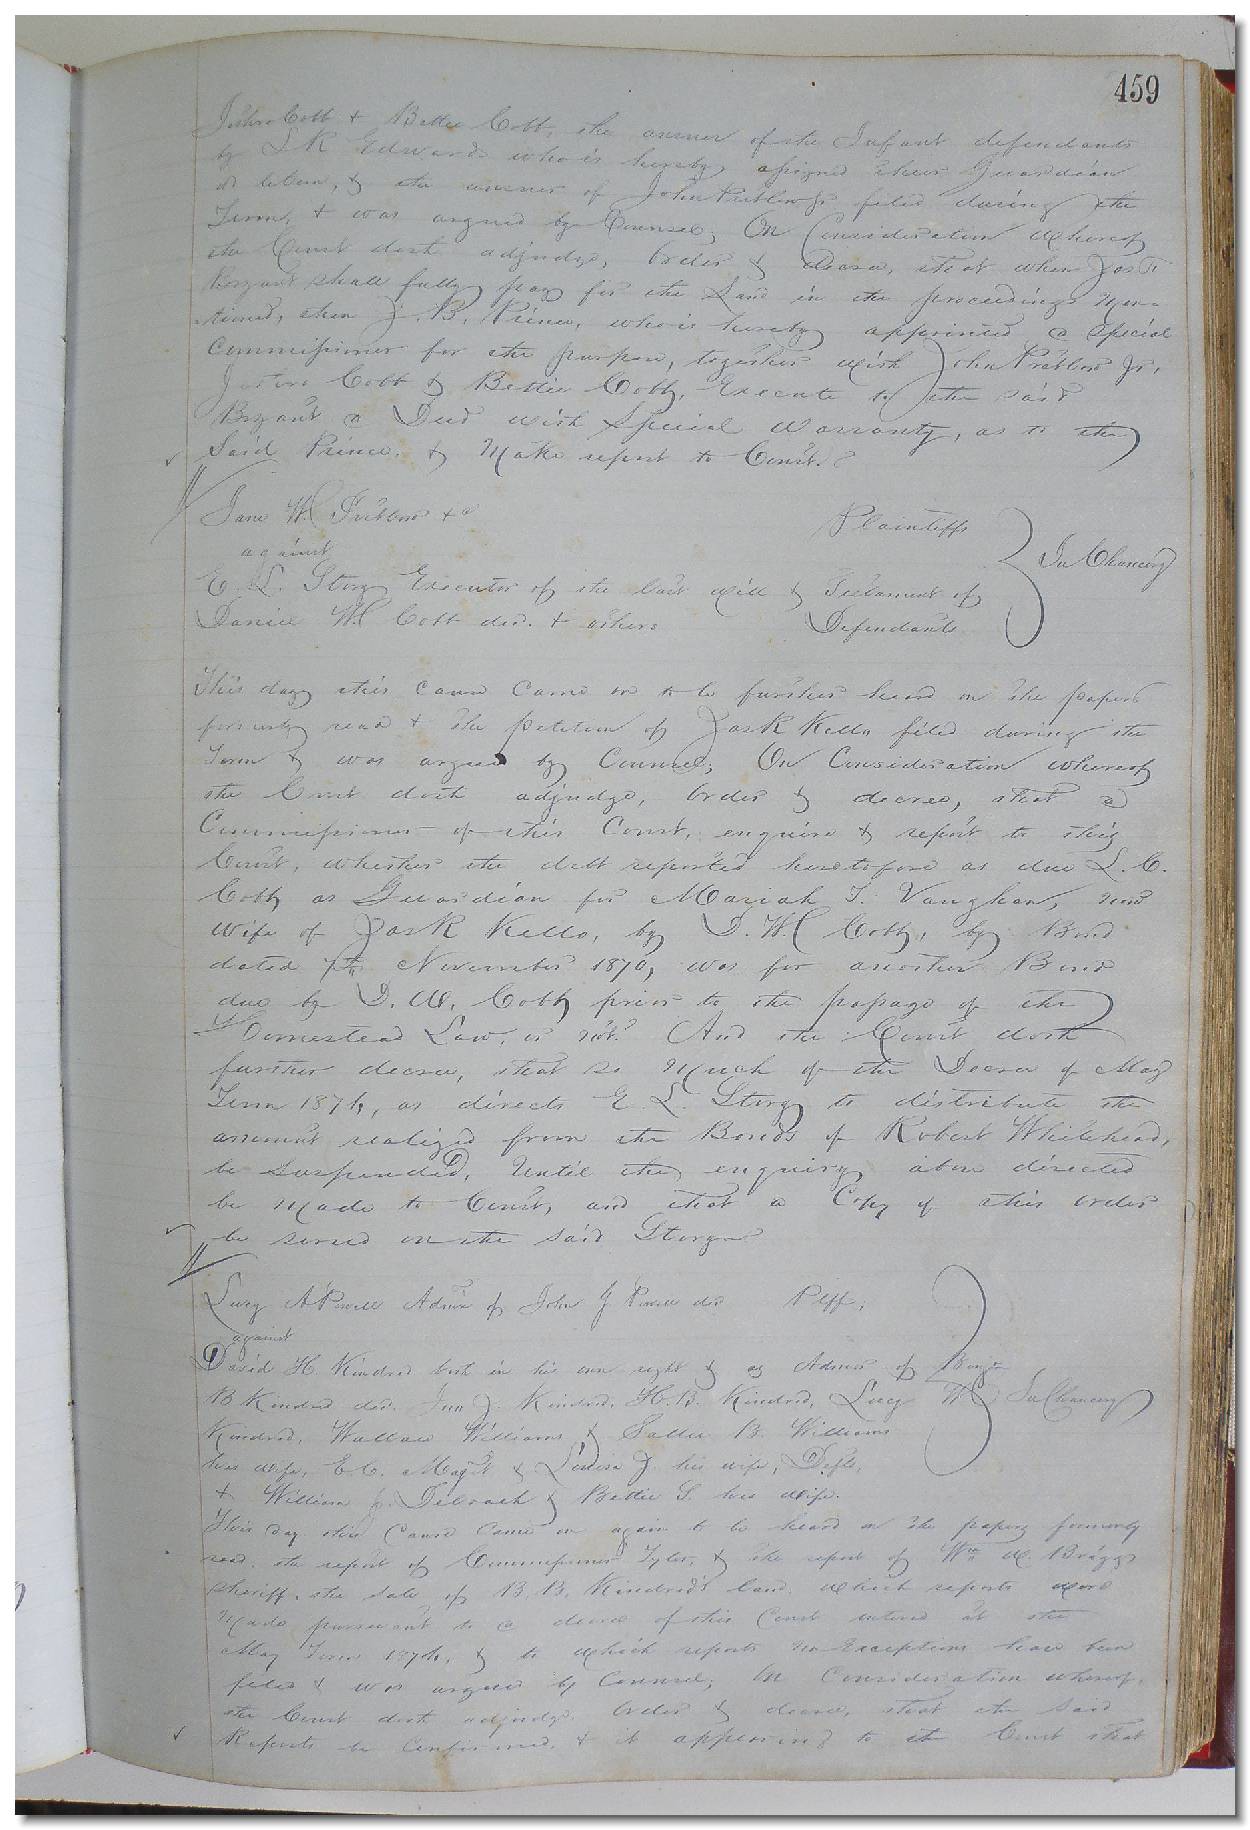 459
Cobb & Bettie Cobb, the answer of the Infant defendants
by L R Edwards who is hereby assigned their Guardian
ad litem, & the answer of John Pretlow Jr filed during the
Term, & was argued by Counsel; On Consideration whereof
the Court doth adjudge, Order & decree, that when Jas T.
Bryant shall fully pay for the Land in the proceedings men-
tioned, then J. B. Prince, who is hereby appointed a Special
Commissioner for the purpose, together with John Pretlow Jr.
Cobb & Bettie Cobb, Execute to the said
Bryant a Deed with Special Warranty, as to the
Said Prince, & Make report to Court.
Jane W. Pretlow &c Plaintiffs
against In Chancery
E. L. Story Executor of the last will & Testament of
Daniel W. Cobb decd. & others Defendants
This day this cause came on to be further heard on the papers
formerly read & the petition of Jas R Kello filed during the
Term & was argued by Counsel; On Consideration whereof
the Court doth adjudge, Order & decree, that a
Commissioner of this Court, enquire & report to this
Court, whether the debt reported heretofore as due L. C.
Cobb as Guardian for Mariah T. Vaughan, now
wife of Jas R Kello, by D. W. Cobb, by Bond
dated 7th November 1870, was for another Bond
due by D. W. Cobb prior to the passage of the
Homestead Law, or not. And the Court doth
further decree, that so Much of the Decree of May
Term 1874, as directs E. L. Story to distribute the
amount realized from the Bonds of Robert Whitehead,
be Suspended, Until the enquiry above directed
be Made to Court, and that a Copy of this order
be served on the said Story
Lucy A Powell Admx of John J Powell decd Plff,
against
David H Kindred both in his own right & as Admor of Benja
B Kindred decd. J. Kindred, H. B. Kindred, Lucy W In Chancery
Kindred, Wallace Williams & Sallie B. Williams
his wife, E C. & Louisa J. his wife, Defts,
& William J. & Bettie S. his wife.
This day this Cause Came on again to be heard on the papers formerly
read, the report of Commissioner Tyler, & the report of Wm W. Briggs
Sheriff, the sale of B. B. Kindred's land, which reports were
Made pursuant to a decree of this Court entered at the
May Term 1874, & to which reports no Exceptions have been
filed & was argued by Counsel; On Consideration whereof,
the Court doth adjudge, Order & decree, that the said
Reports be Confirmed, & it appearing to the Court that